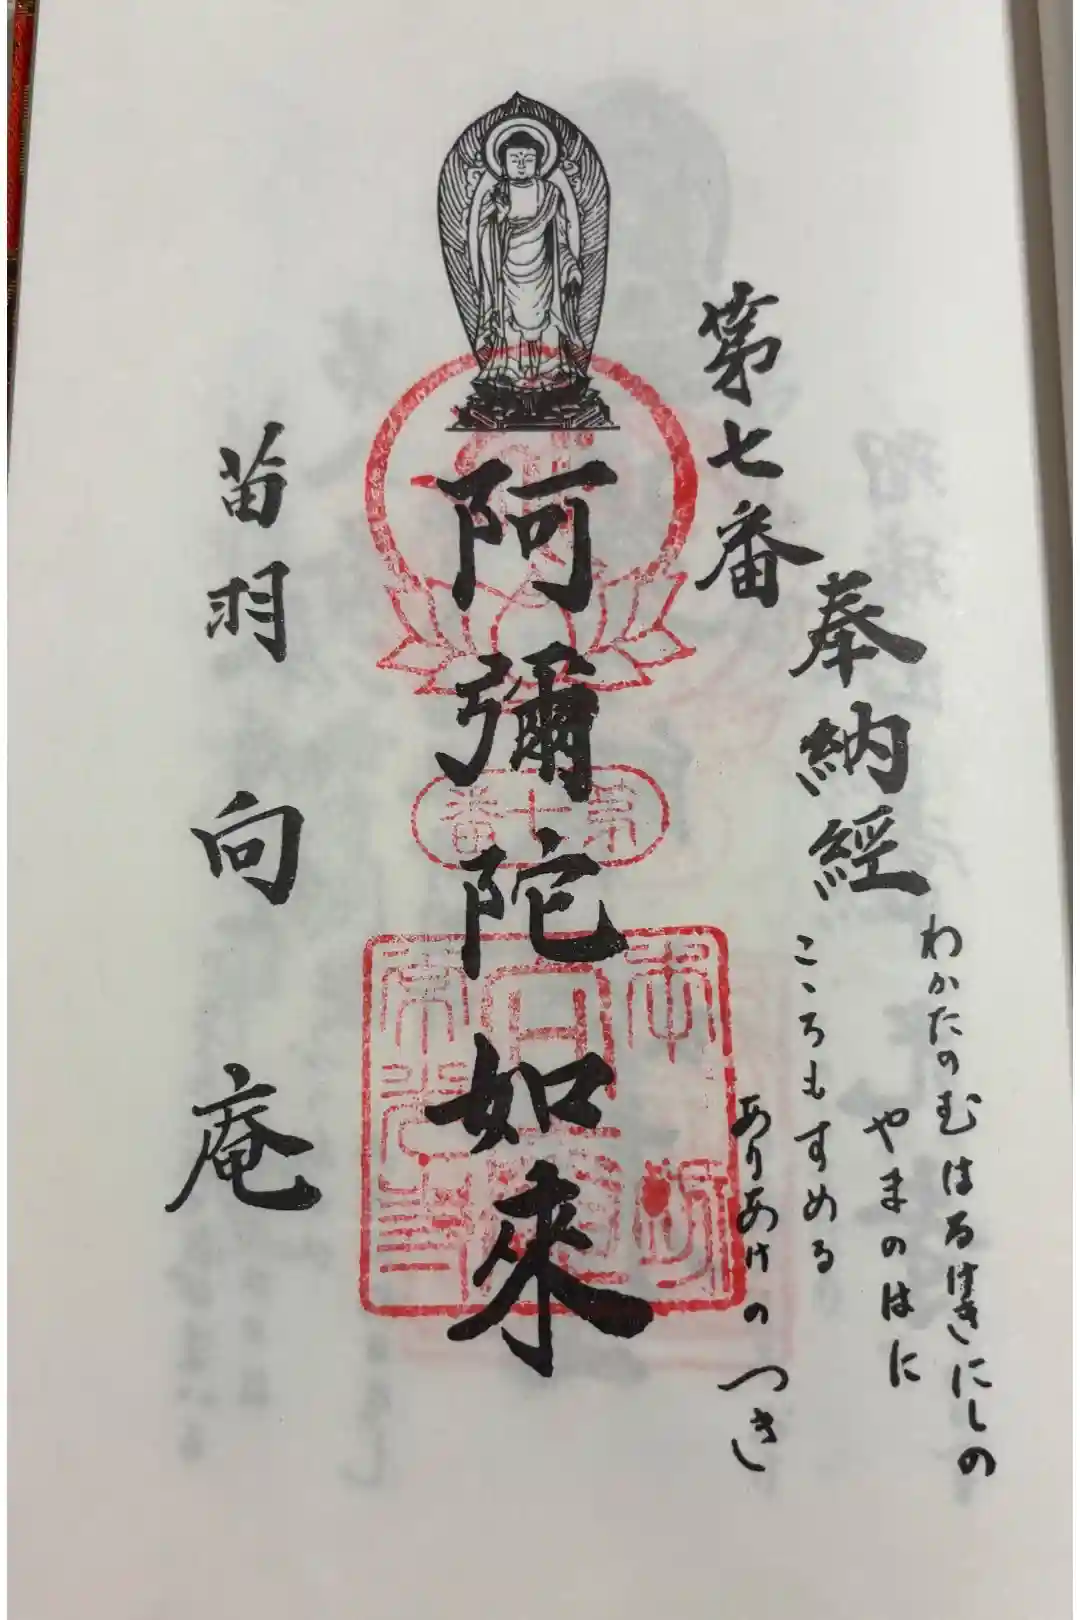 奉納經
わかたのむはるけきにしの
やまのはに
こゝろもすめる
ありあけのつき
第七番
阿彌陀如來
苗羽 向 庵